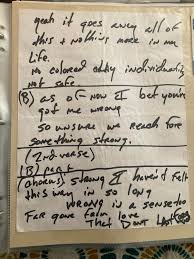 yeah it goes away all of
this + nothing more in my
Life.
No colored
not safe
(B) as of now I bet you've
got me wrong
So unsure we reach for
something strong.
(2nd verse)
(B) part
(chorus) strong I haven't felt
this way in so long
WRONG is a sense too
Far gone from love
That Dont Last